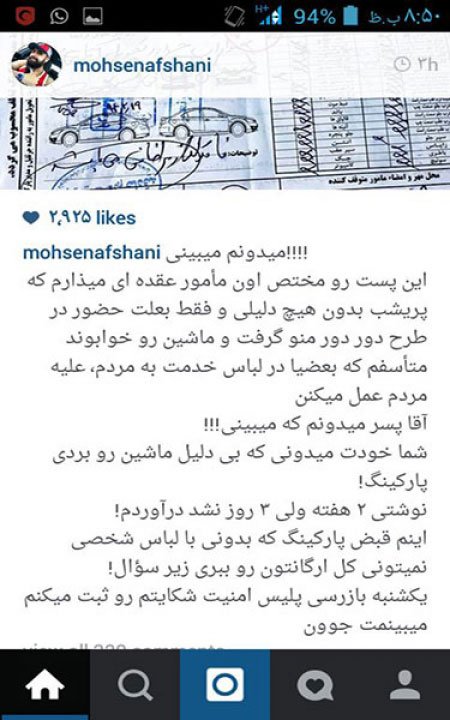 ۸:۵۰ ب.ظ 94% H+
mohsenafshani ۳h
توضیحات:
محل مهر و امضاء مامور متوقف کننده
۲,۹۲۵ likes
mohsenafshani میدونم میبینی!!!!
این پست رو مختص اون مأمور عقده ای میذارم که
پریشب بدون هیچ دلیلی و فقط بعلت حضور در
طرح دور دور منو گرفت و ماشین رو خوابوند
متأسفم که بعضیا در لباس خدمت به مردم، علیه
مردم عمل میکنن
آقا پسر میدونم که میبینی!!!
شما خودت میدونی که بی دلیل ماشین رو بردی
پارکینگ!
نوشتی ۲ هفته ولی ۳ روز نشد درآوردم!
اینم قبض پارکینگ که بدونی با لباس شخصی
نمیتونی کل ارگانتون رو ببری زیر سؤال!
یکشنبه بازرسی پلیس امنیت شکایتم رو ثبت میکنم
میبینمت جوون
view all 220 comments